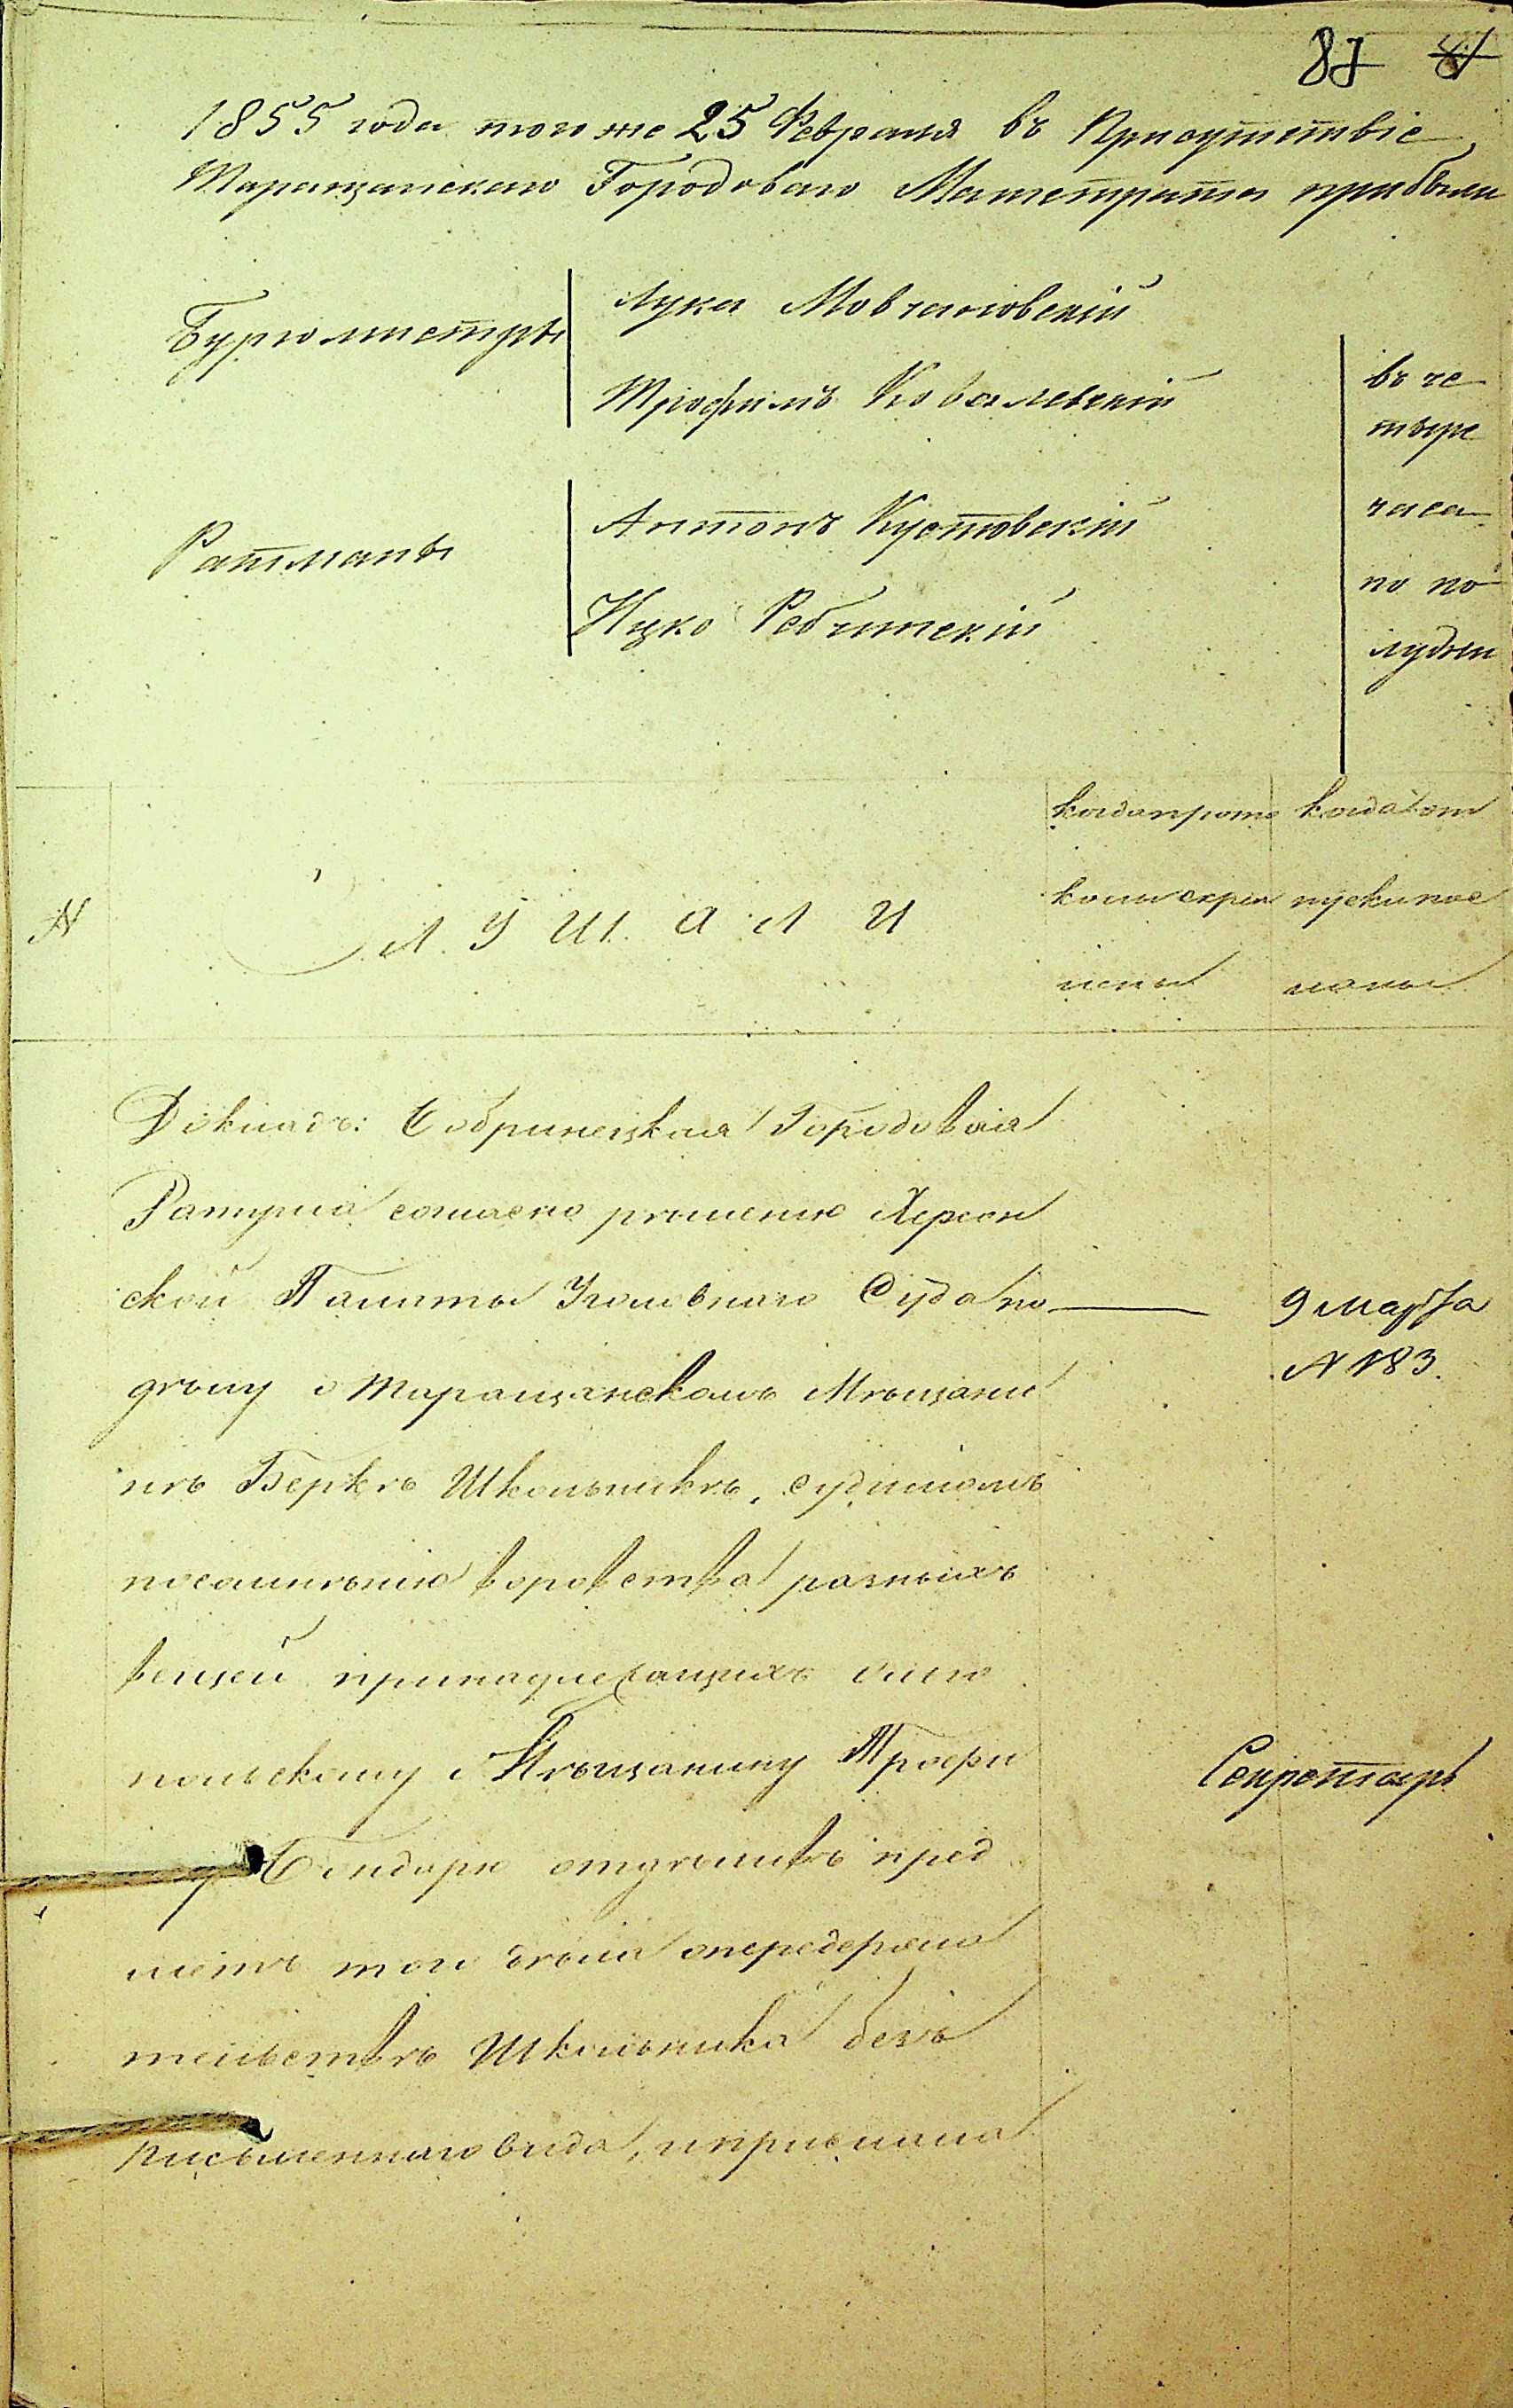 87 81
1855 года того же 25 Февраля въ Присутствіе
Таращанскаго Городоваго Магистрата прибыли
Бургомистры
Лука Мовчановскій
Трофимъ Ковалевскій
Ратманы
Антонъ Кустовскій
Ицко Ребитскій
въ че
тыре
часа
по по
лудни
N
Слушали
когда прото
колы скреп
лены
когда от
пуски пос
ланы
Докладъ: Бобринецкая Городовая
Ратуша согласно решенію Херсон
ской Палаты Уголовнаго Суда по
делу о Таращанскомъ Мѣщани
нѣ Беркѣ Школьникѣ, судимомъ
посомненію воровства разныхъ
вещей принадлежащихъ Ольго
польскому Мѣщанину Трофи
му Бондарю отделивъ пред
метъ того дѣла опередержа
тельствѣ Школьника безъ
письменнаго вида, и прислала
9 Марта
N 183.
Секретарь